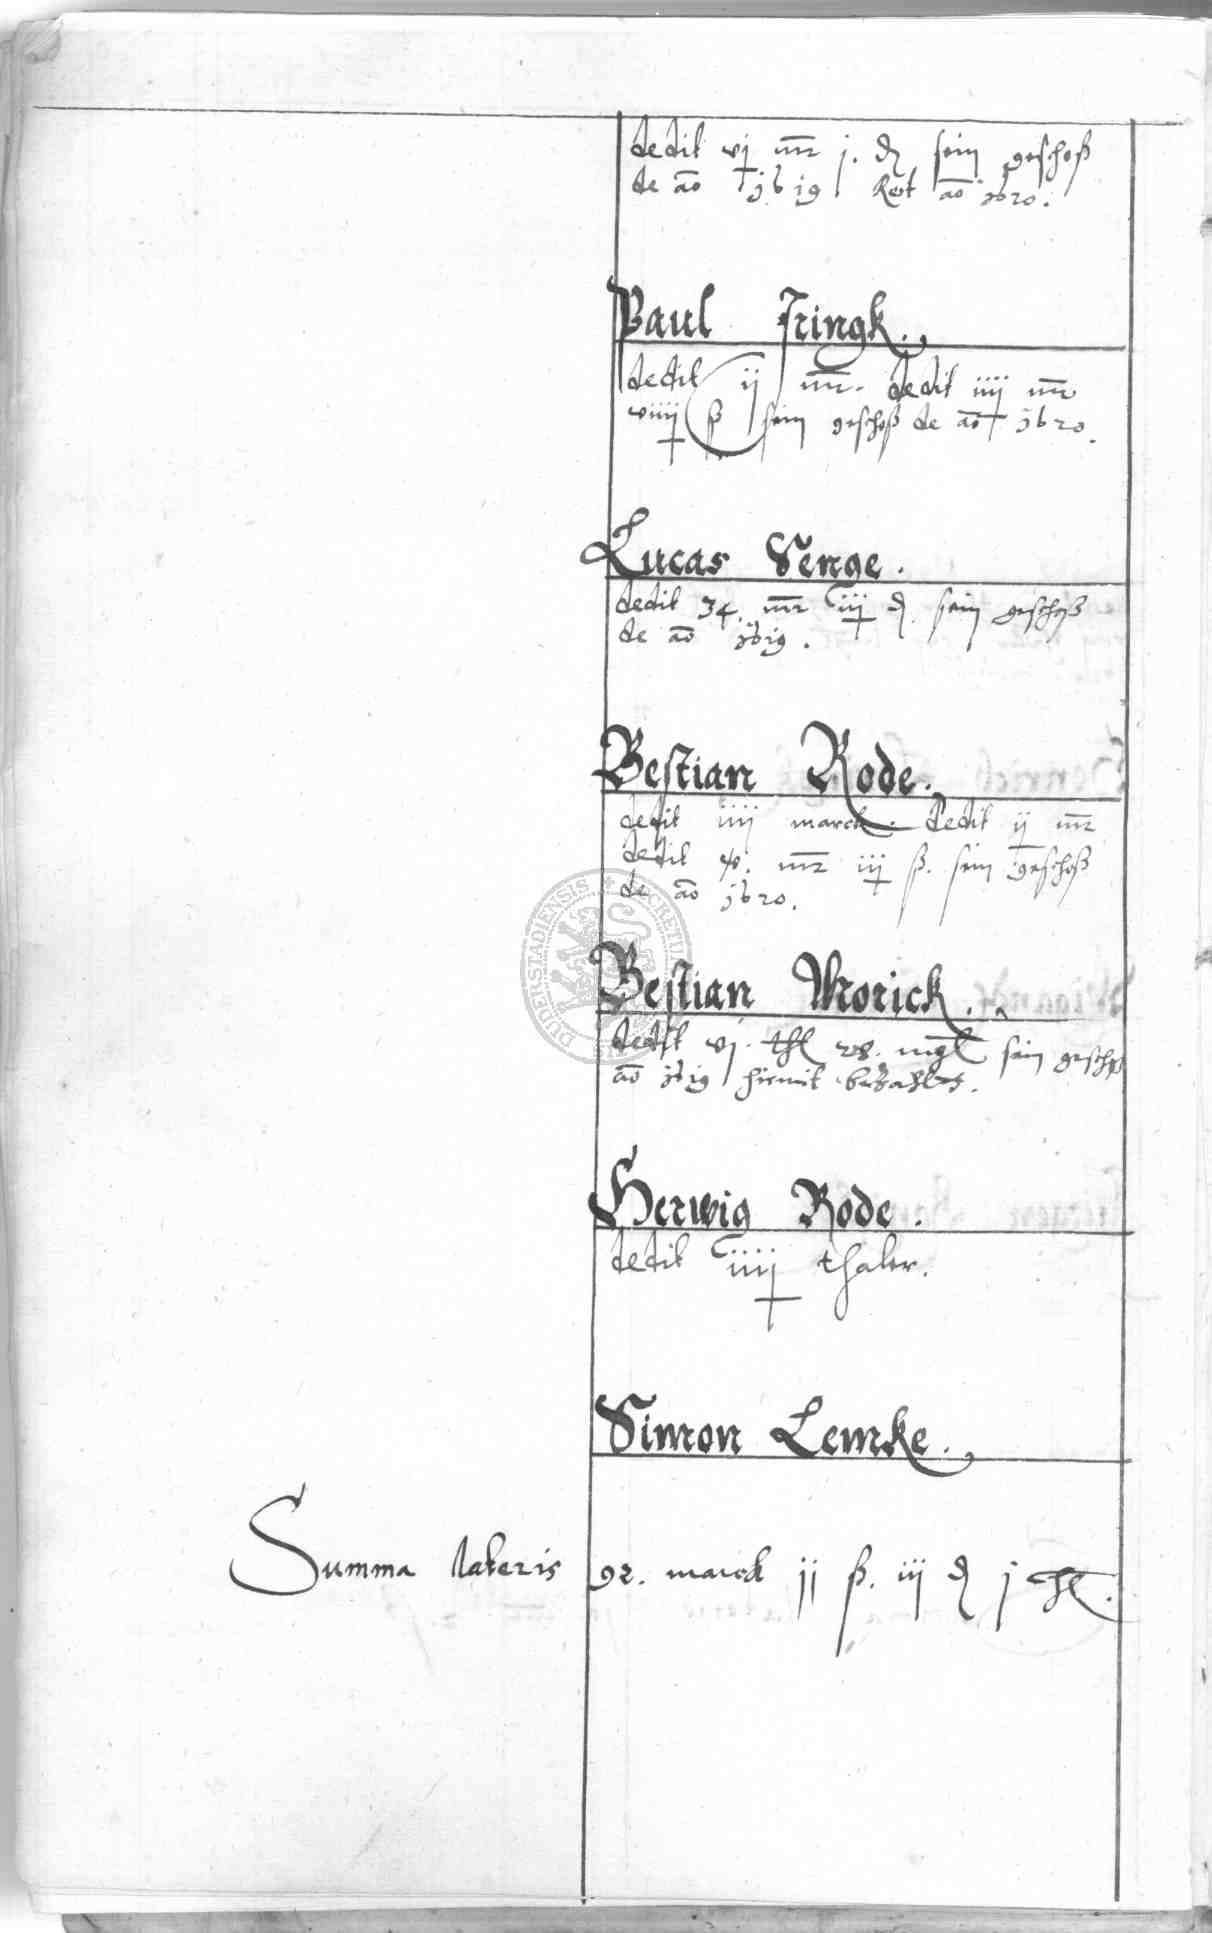 dedit vj mr j. d sein geschoß
de ao j6j9 Rest ao j620.
Paul Iringk.
dedit ij mr. dedit iiij mr
viiij ß sein geschoß de ao j620.
Lucas Senge.
dedit 34. mr iij d. sein geschoß
de ao j6j9.
Bestian Rode.
dedit iiij marck. dedit ij mr
dedit mr iij ß. sein geschoß
de ao j620.
Bestian Morick.
dedit vj. thl 28. mgl sein geschoß
ao j6j9 hiemit bezahlt.
Herwig Rode.
dedit iiij thaler.
Simon Lemke.
Summa lateris 92. marck jj ß. iij d j hl.
DUDERSTADIENSIS SECRETUM